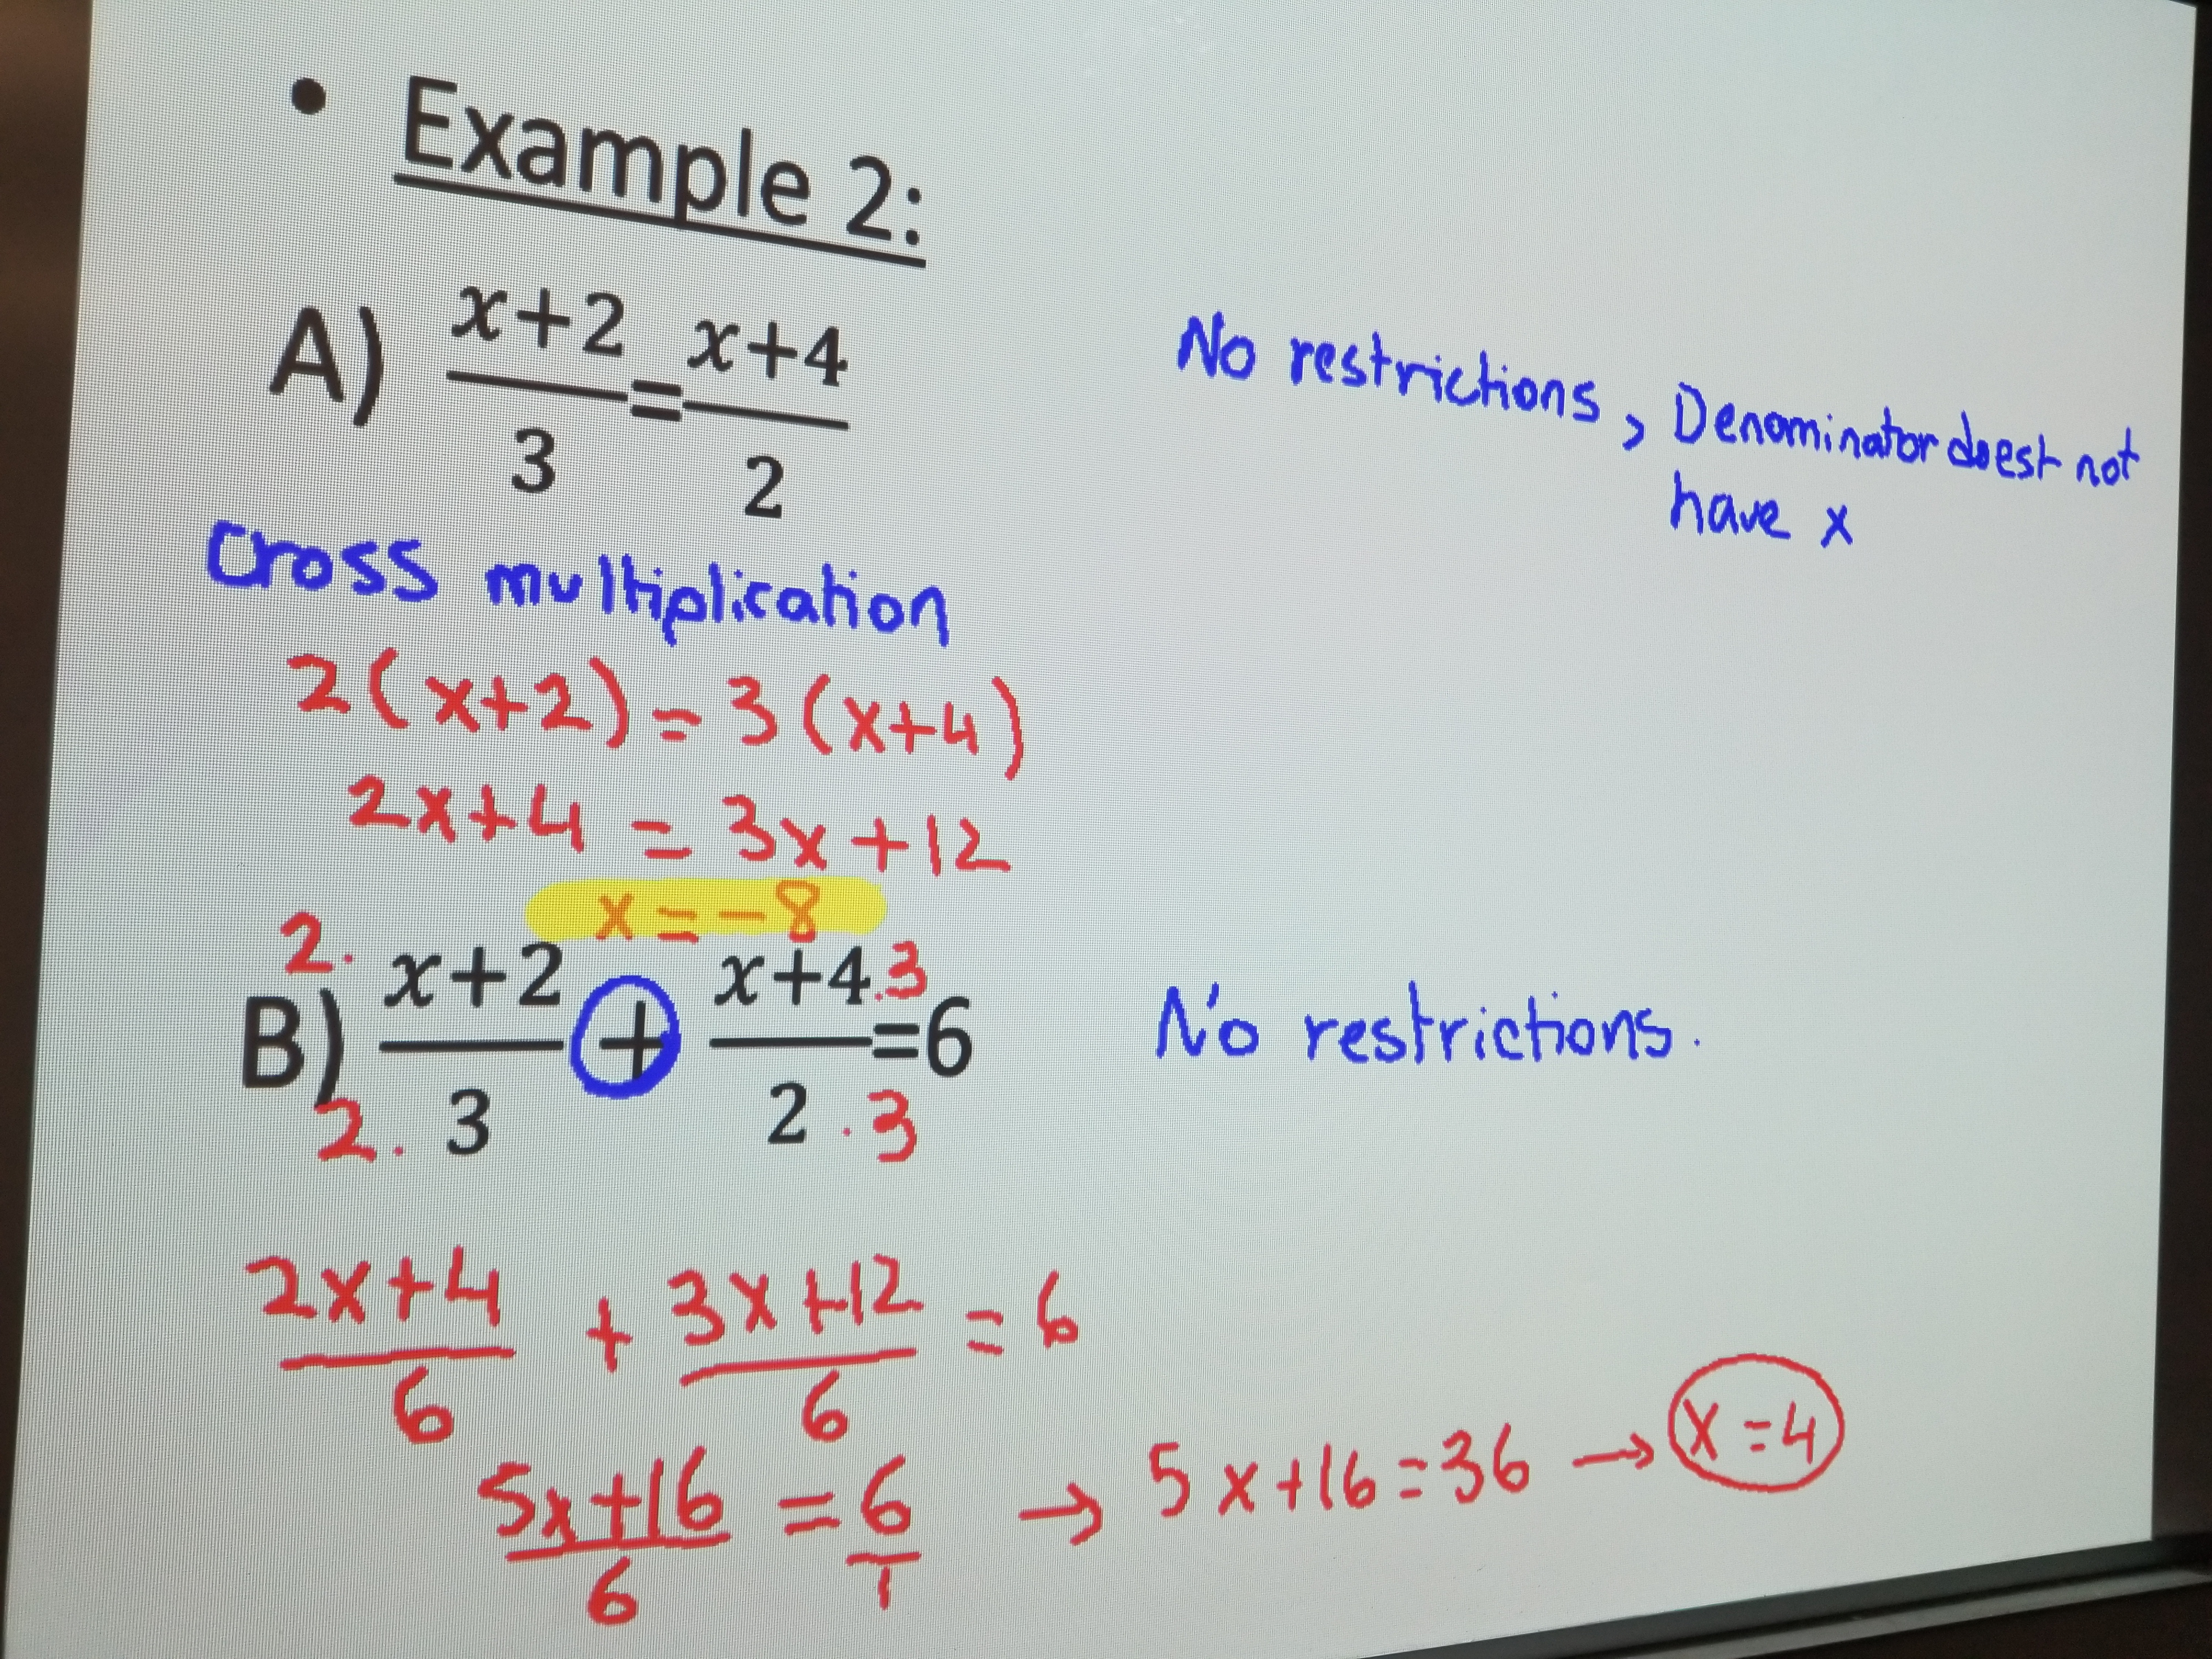 • Example 2:
A) x+2/3 = x+4/2
No restrictions, Denominator doest not
have x
Cross multiplication
2(x+2) = 3(x+4)
2x+4 = 3x+12
x = -8
B) 2. x+2/2. 3 + x+4 .3/2 .3 =6
No restrictions.
2x+4/6 + 3x+12/6 = 6
5x+16/6 = 6/1 → 5x+16=36 → x=4